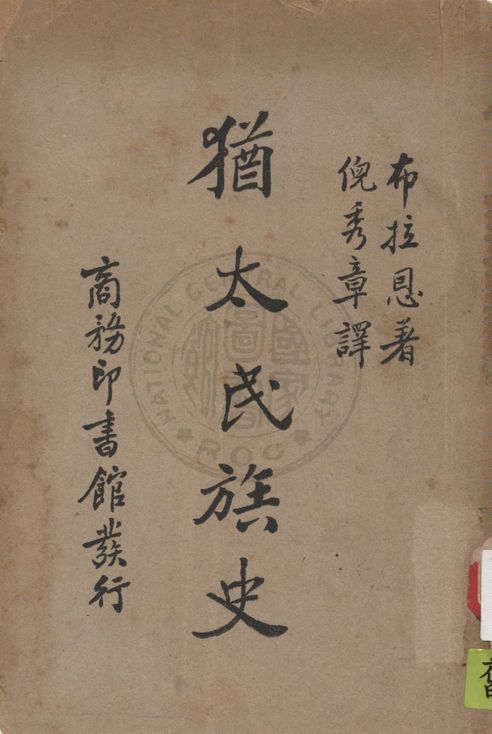 布拉恩著
倪秀章譯
猶太民族史
商務印書館發行
NATIONAL CENTRAL LIBRARY
R.O.C.
舊